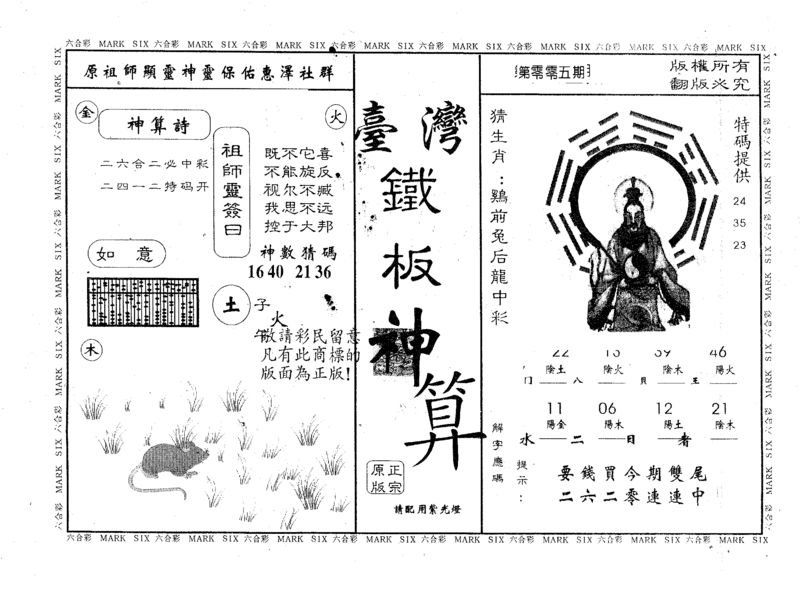 六合彩 MARK SIX 六合彩 MARK SIX 六合彩 MARK SIX 六合彩 MARK SIX 六合彩 MARK SIX 六合彩 MARK SIX 六合彩 MARK SIX 六合彩 MARK SIX
原祖師顯靈神靈保佑惠澤社群
金
火
神算詩
二六合二必中彩
二四一二特码开
祖師靈簽曰
既不它喜
不能旋反
视尔不臧
我思不远
控于大邦
神數猜碼
16 40 21 36
如意
土
子
火
午
敬請彩民留意
凡有此商標的
版面為正版!
木
臺灣
鐵板神算
正宗
原版
請配用紫光燈
第零零五期
版權所有
翻版必究
猜生肖:鷄前兔后龍中彩
特码提供
24
35
23
22 46
陰土 陰火 陰木 陽火
11 06 12 21
陽金 陽木 陽土 陰木
水 二 日 者
解字應碼
提示:
要錢買今期雙尾
二六二零連連中
六合彩 MARK SIX 六合彩 MARK SIX 六合彩 MARK SIX 六合彩 MARK SIX 六合彩 MARK SIX 六合彩 MARK SIX 六合彩 MARK SIX 六合彩 MARK SIX